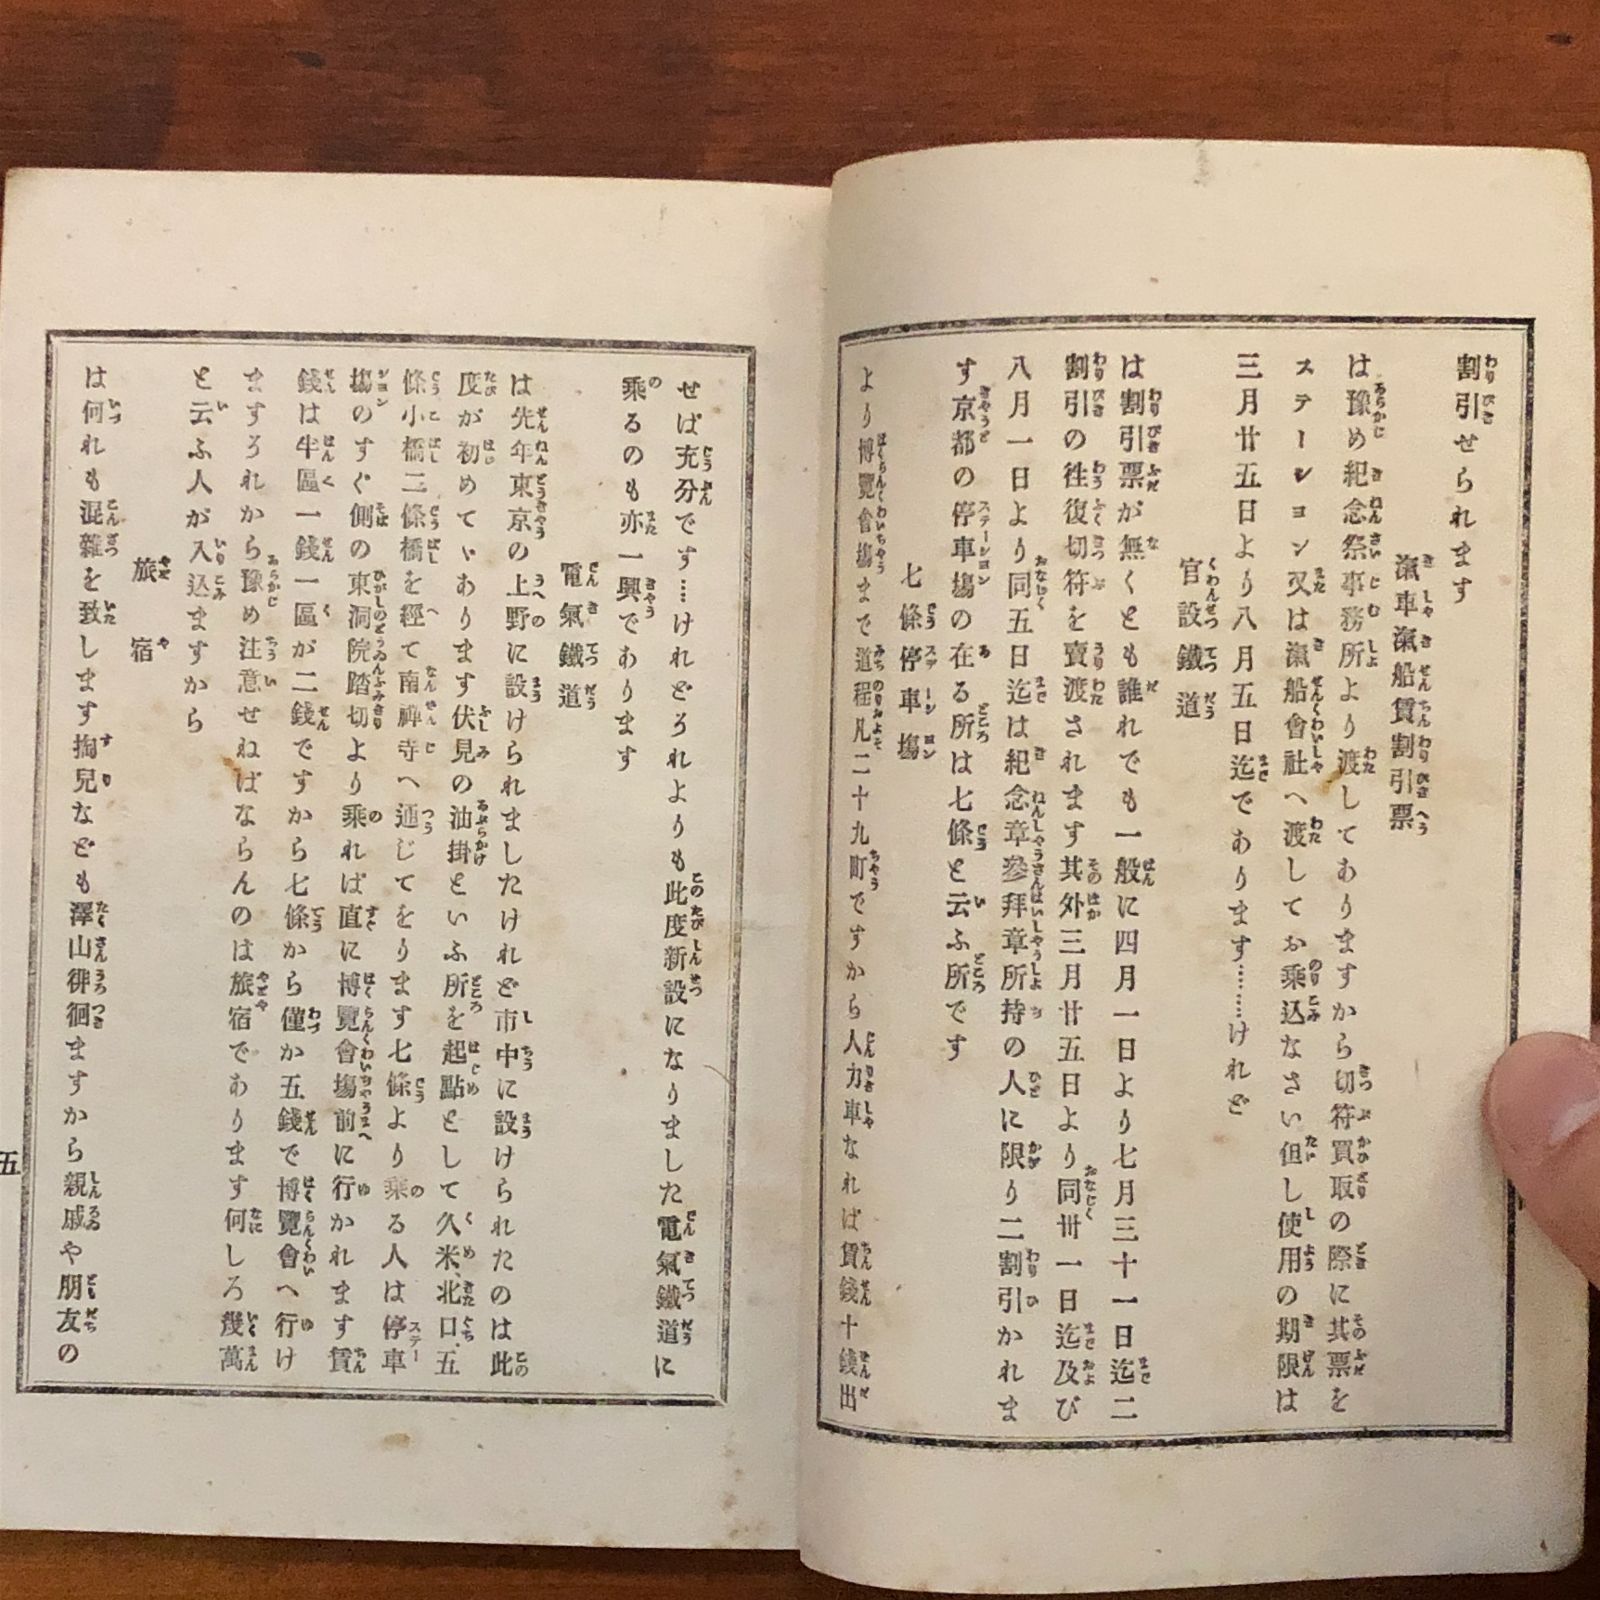 割引せられます
滊車滊船賃割引票
は豫め紀念祭事務所より渡してありますから切符買取の際に其票を
ステーシヨン又は滊船會社へ渡してお乘込なさい但し使用の期限は
三月廿五日より八月五日迄であります………けれど
官設鐵道
は割引票が無くとも誰れでも一般に四月一日より七月三十一日迄二
割引の徃復切符を賣渡されます其外三月廿五日より同卅一日迄及び
八月一日より同五日迄は紀念章參拜章所持の人に限り二割引かれま
す京都の停車塲の在る所は七條と云ふ所です
七條停車塲
より博覽會塲まで道程凡二十九町ですから人力車なれば賃錢十錢出
せば充分です…けれどそれよりも此度新設になりました電氣鐵道に
乘るのも亦一興であります
電氣鐵道
は先年東京の上野に設けられましたけれど市中に設けられたのは此
度が初めてゝあります伏見の油掛といふ所を起點として久米、北口、五
條小橋二條橋を經て南禪寺へ通じてをります七條より乘る人は停車
塲のすぐ側の東洞院踏切より乘れば直に博覽會塲前に行かれます賃
錢は半區一錢一區が二錢ですから七條から僅か五錢で博覽會へ行け
ますそれから豫め注意せねばならんのは旅宿であります何しろ幾萬
と云ふ人が入込ますから
旅宿
は何れも混雜を致します掏兒なども澤山徘徊ますから親戚や朋友の
五